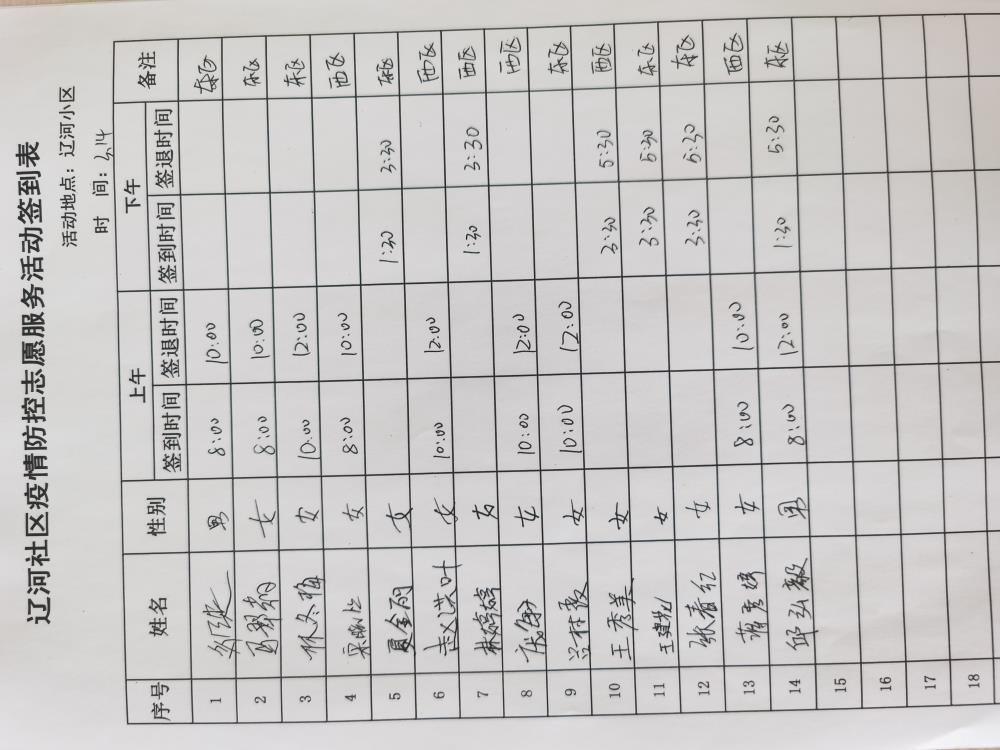 辽河社区疫情防控志愿服务活动签到表
活动地点：辽河小区
时 间：3.14
序号 姓名 性别 上午 下午 备注
签到时间 签退时间 签到时间 签退时间
1 男 8:00 10:00 东区
2 女 8:00 10:00 东区
3 林冬梅 女 10:00 12:00 东区
4 女 8:00 10:00 西区
5 夏金丽 女 1:30 3:30 东区
6 女 10:00 12:00 西区
7 林婷婷 女 1:30 3:30 西区
8 女 10:00 12:00 西区
9 女 10:00 12:00 东区
10 王秀美 女 3:30 5:30 西区
11 女 3:30 5:30 东区
12 张春红 女 3:30 5:30 东区
13 女 8:00 10:00 西区
14 邱弘毅 男 8:00 12:00 1:30 5:30 东区
15
16
17
18